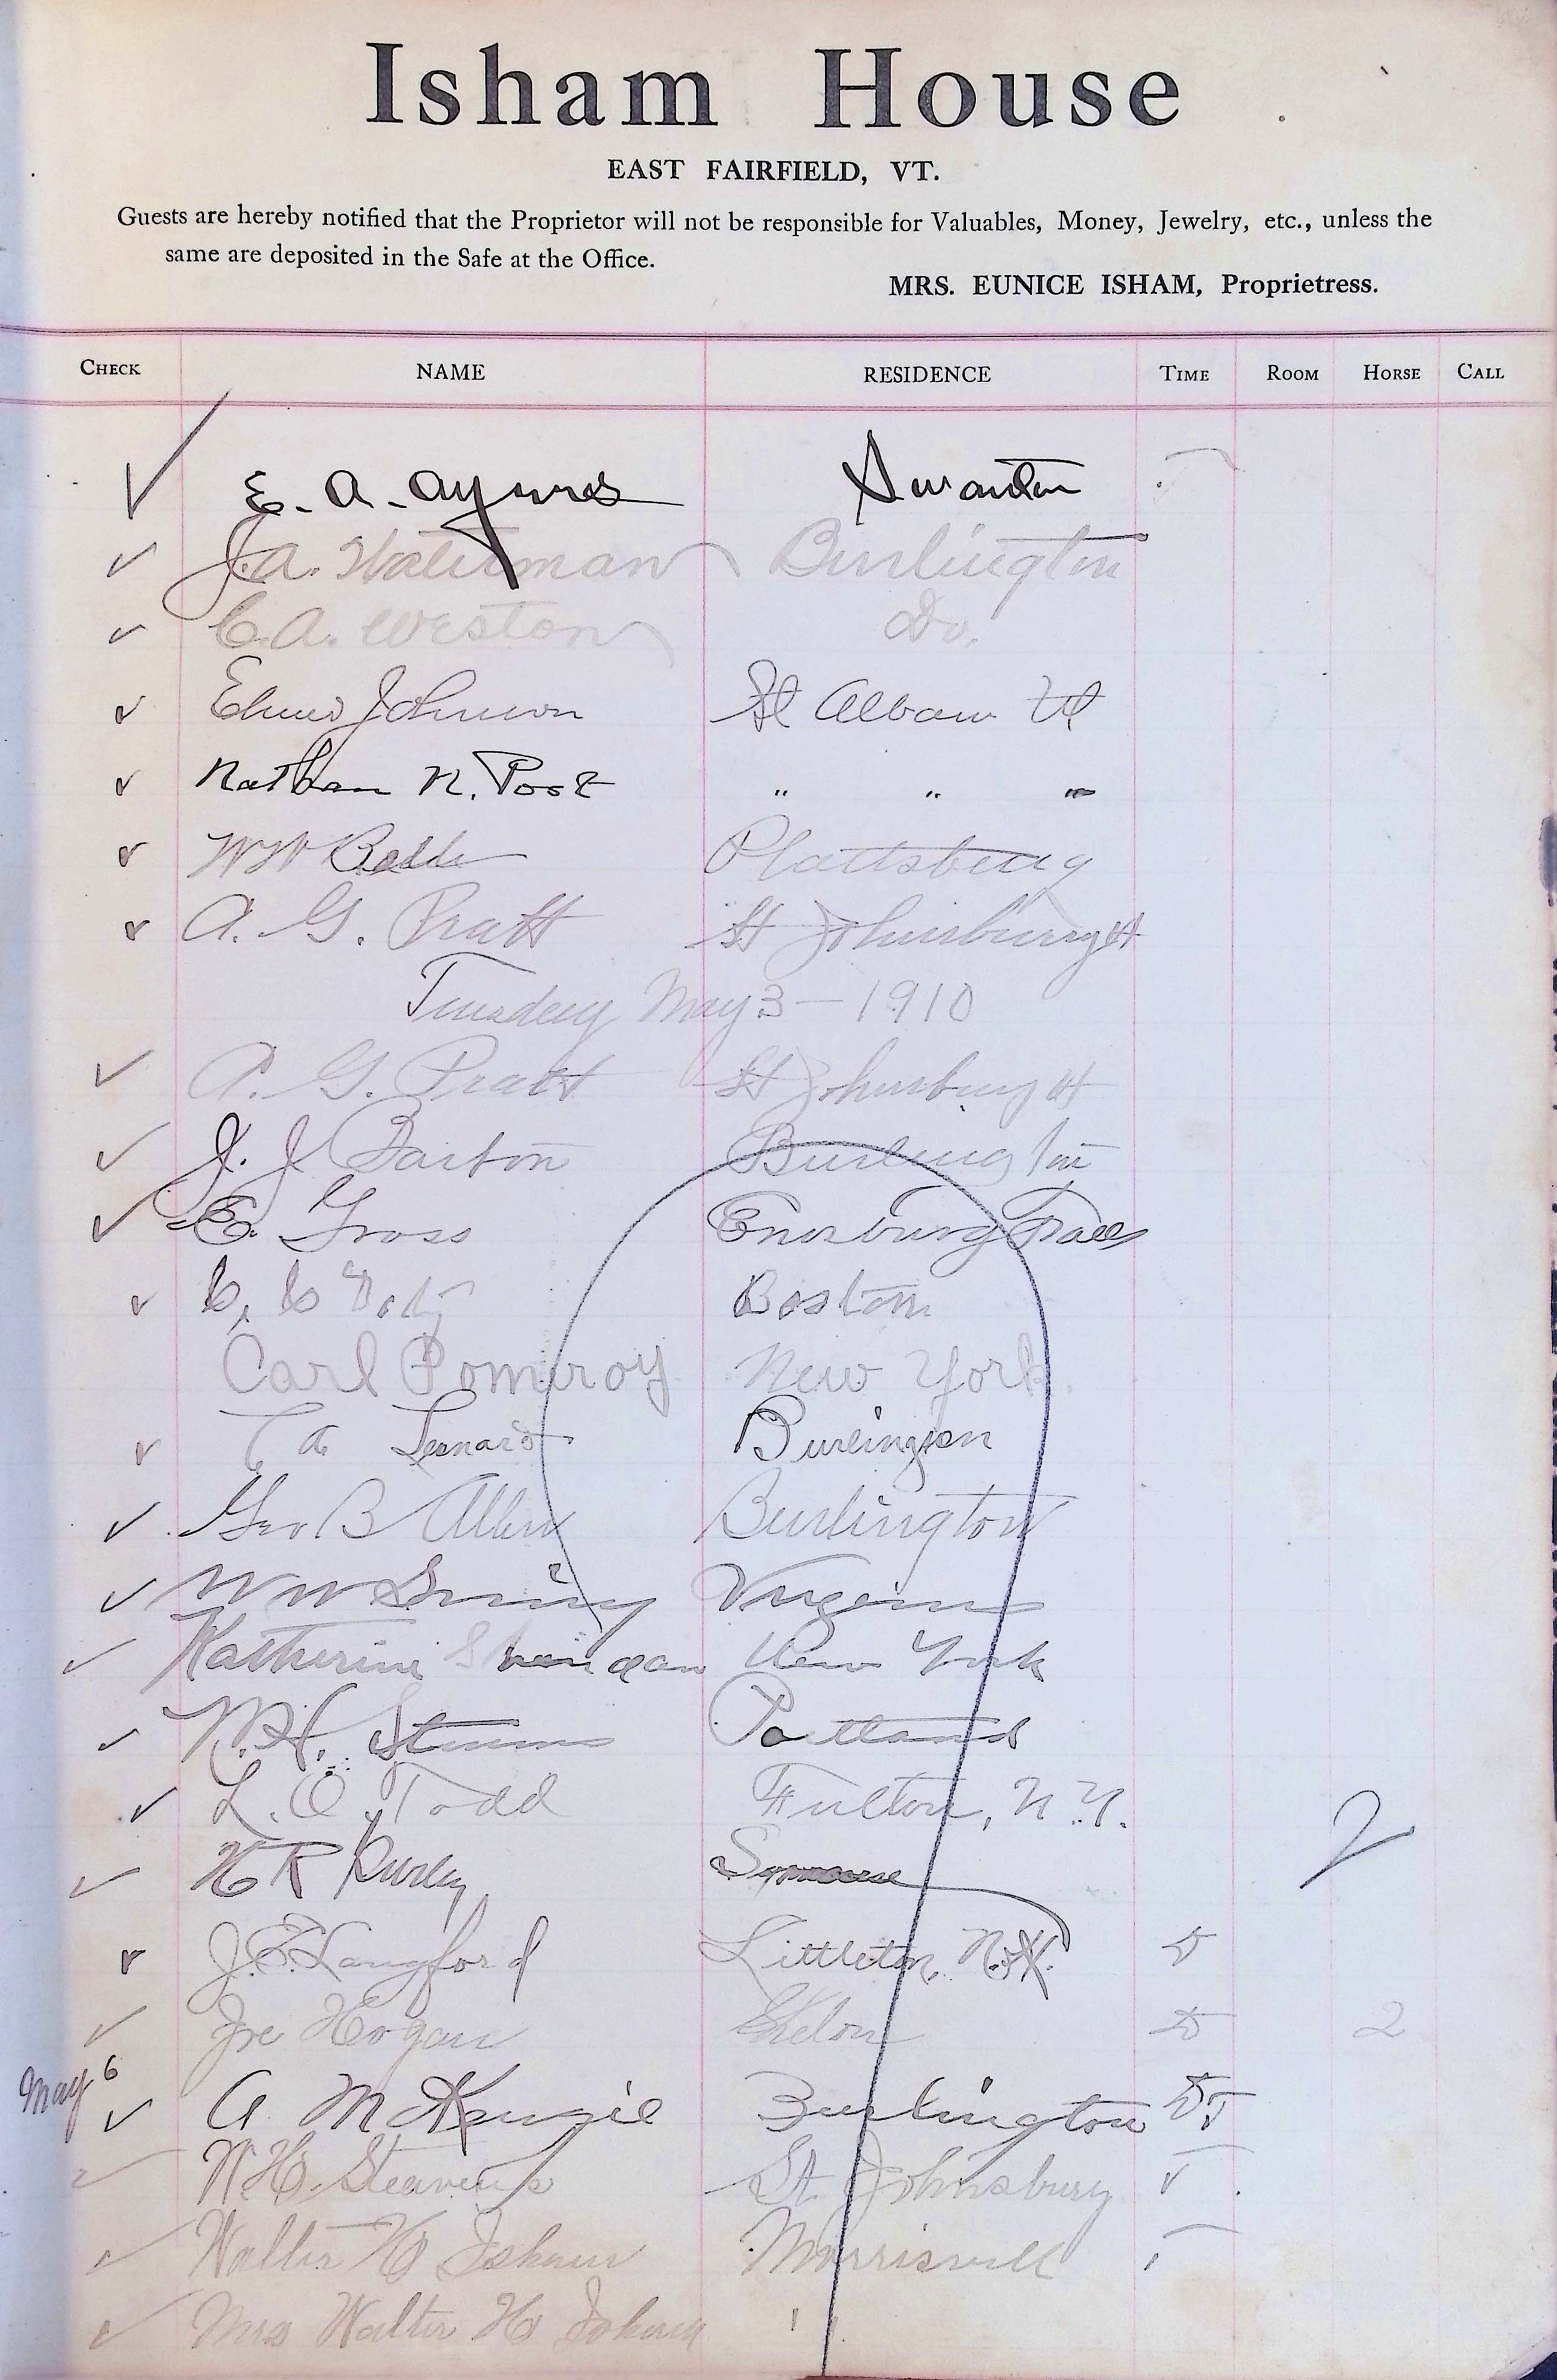 Isham House
EAST FAIRFIELD, VT.
Guests are hereby notified that the Proprietor will not be responsible for Valuables, Money, Jewelry, etc., unless the
same are deposited in the Safe at the Office.
MRS. EUNICE ISHAM, Proprietress.
CHECK NAME RESIDENCE TIME ROOM HORSE CALL
✓ E. A. Ayres Swanton T
✓ J. A. Waterman Burlington
✓ C. A. Weston Do.
✓ Elmer Johnson St Albans Vt
✓ Nathan N. Post " " "
✓ W W Plattsburg
✓ A. G. Pratt St Johnsbury Vt
Tuesday May 3 — 1910
✓ A. G. Pratt St Johnsbury Vt
✓ J. J. Barton Burlington
✓ E. Gross Enosburg Falls
✓ C. C. Boston
Carl Pomeroy New York
✓ A Leonard Burlington
✓ Geo B Allen Burlington
✓ W W Virginia
✓ Katherine Sheridan New York
✓ Portland
✓ L. O. Todd Fulton, N.Y.
✓ H R Syracuse 2
✓ J. E. Langford Littleton, N.H. D
✓ Joe Hogan Sheldon D 2
May 6
✓ A McKenzie Burlington D T
✓ W. H. Steavens St. Johnsbury T
✓ Walter H Isham Morrisvill T
✓ Mrs Walter H Isham "